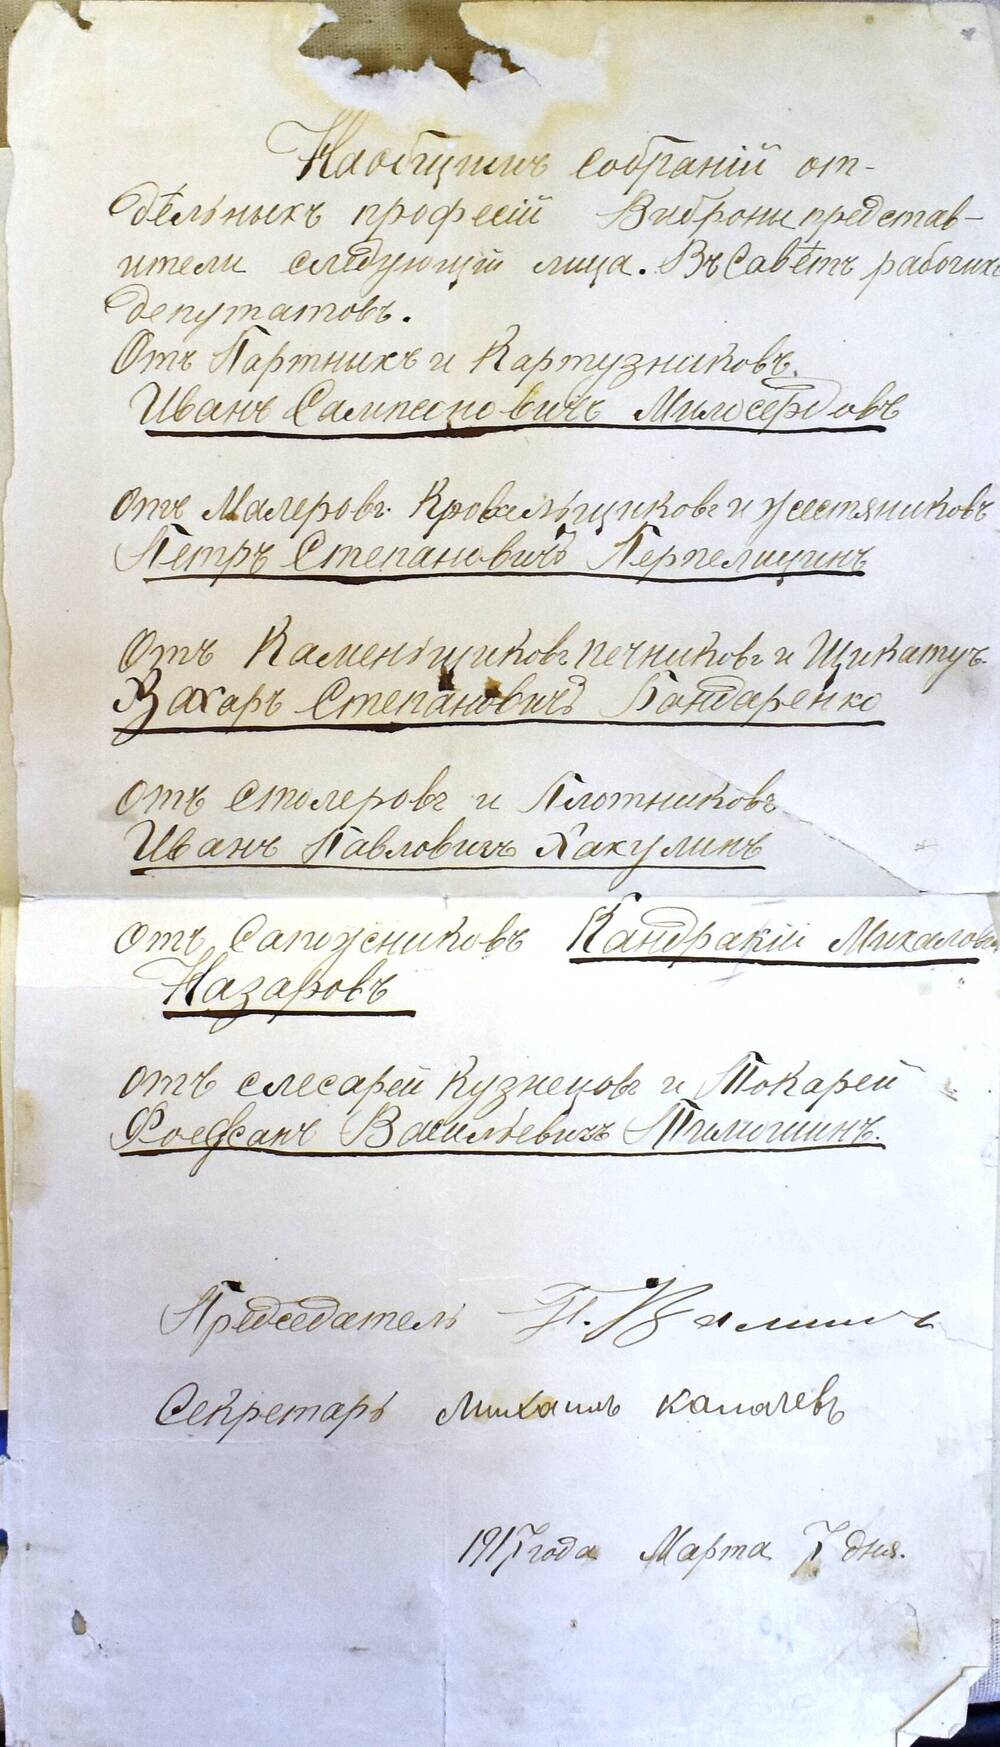 Наобщимъ собраній от-
дѣльныхъ професій Виброны представ-
ители следующій лица. Въ Савѣтъ рабочихъ
депутатовъ.
Отъ Партныхъ и Картузниковъ.
Иванъ Сампсоновичъ Милосердовъ
Отъ Малеровъ. Кровальщиковъ и жестяниковъ
Петръ Степановичъ Перпелицинъ
Отъ Каменьщиковъ печниковъ и Щикатуъ.
Захаръ Степановичъ Бондаренко
Отъ Столеровъ и Плотниковъ
Иванъ Павловичъ Хакулинъ
Отъ Сапожниковъ Кандракій Михалови
Назаровъ
Отъ слесарей Кузнецовъ и Токарей
Фоефанъ Васильевичъ Тимошинъ.
Предсѣдатель П.
Секретарь Михаилъ
1917 года Марта 7 дня.